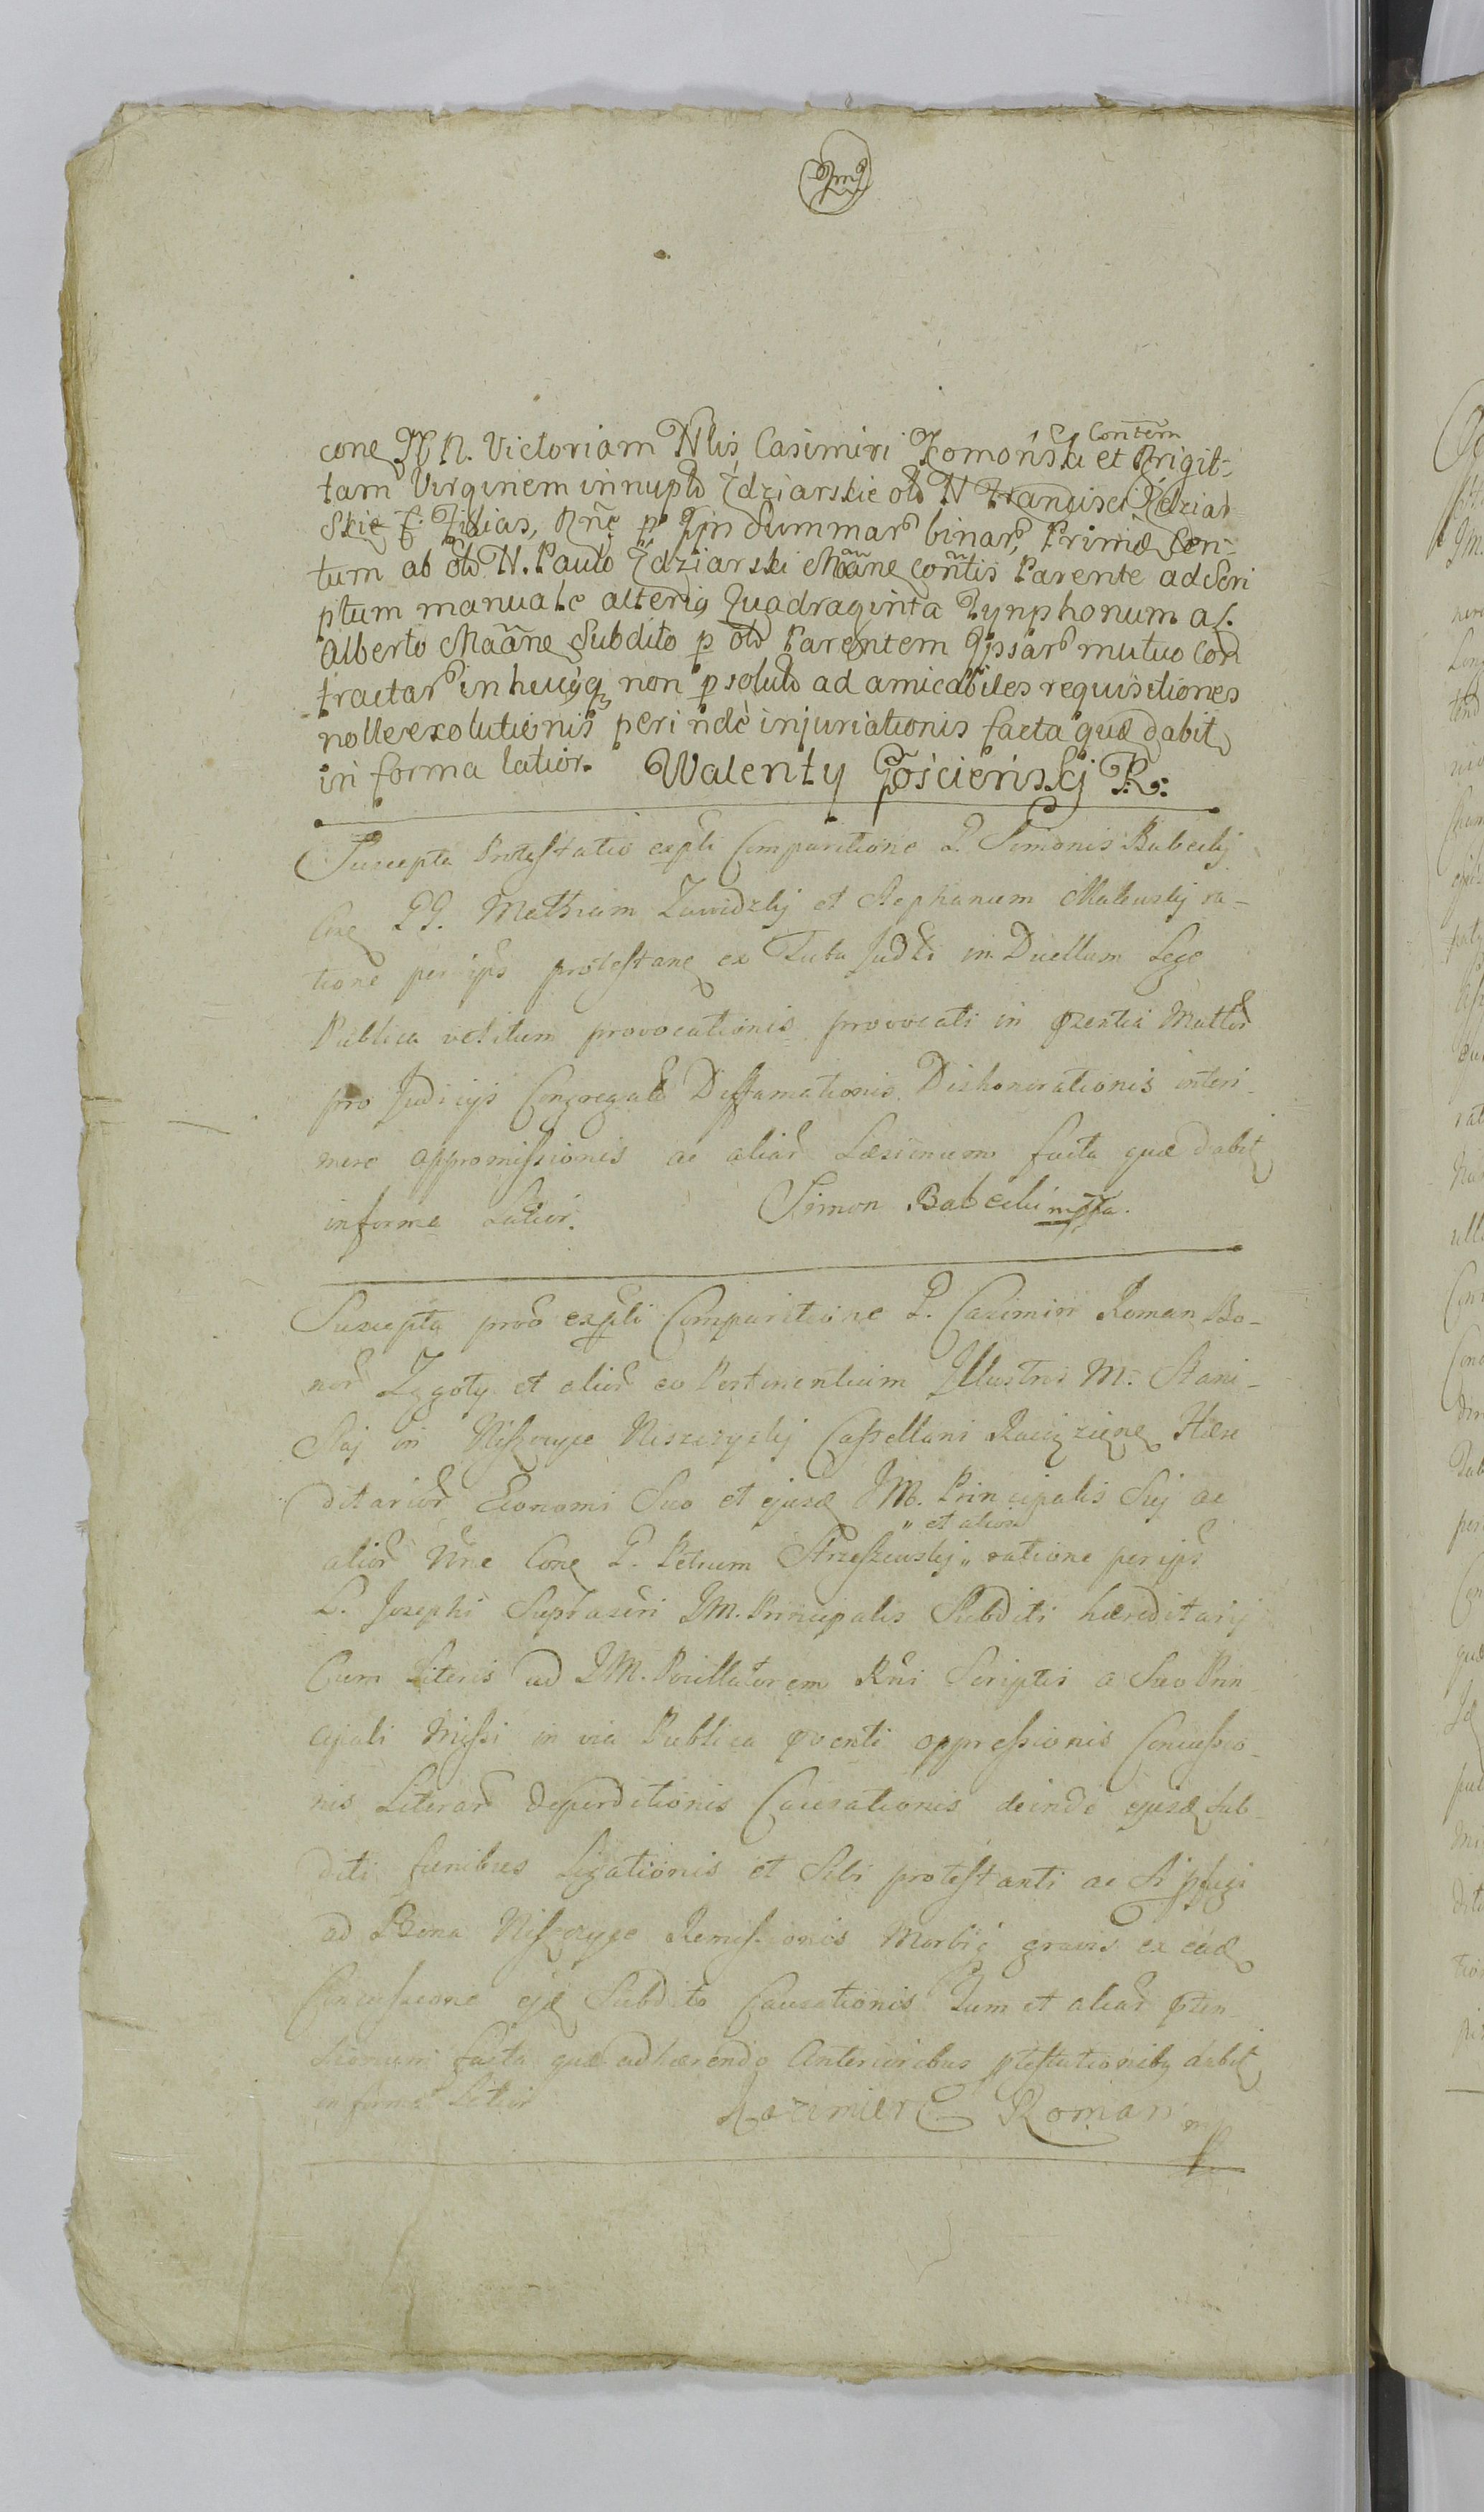 cone NN. Victoriam Nlis Casimiri Komoński Contem et Brigit-
tam Virginem innupta Zdziarskie olo N Francisci Zdziar
skie F. Filias, Rne p Ipn Summar binar, Primæ Cen-
tum ab olo N. Paulo Zdziarski Maane contis Parente ad Scri
ptum manuale alterig Quadraginta Tynphonum a f.
Alberto Maane Subdito p olo Parentem Ipsar mutuo con
tractar in hucusq non p soluto ad amicabiles requisitiones
nolleexolutionis perinde injuriationis facta quæ dabit
in forma latior. Walenty Gościeński R:
Suscepta Protestatio expti Comparitione G. Simonis Babecky
Cone GG. Mathiam Zawidzky et Stephanum Malewsky ra-
tione per ips protestane ex Juba Judti in Duellum Lege
Publica vetitum provocationis provocati in præntia Multor
pro Judicys Congregato Diffamationis Dishonorationis interi-
mere appromissionis ac aliar Læsionum facta quæ dabit
in forma Latior. Simon Babecki mppa.
Suscepta pro expti Comparitione G. Casimiri Roman Bo-
nor Zegoty et alior eo Pertinentium Illustris M. Stani-
slaj in Niszczyce Niszczycky Castellani Raciąziene Hære
ditarior Economi Suo et ejusd IM. Principalis Sui ac
alior Nne Cone G. Petrum Strzeszewsky " et alior " ratione per ips
L. Josephi Suprascri IM. Principalis Subditi hæreditarij
Cum Literis ad IM. Pocillatorem Rni Scriptis a Suo Prin
cipali Missi in via Publica pventi oppressionis Concussio-
nis Literar deperditionis Causationis deinde ejusd Sub-
diti funibus Ligationis et Sibi protestanti ac si pfugi
ad Bona Niszczyce Remissionis Morbiq gravis ex ead
Concussione ejd Subdito Causationis Tum et aliar præten
sionum facta quæ adhærendo Anterioribus ptestationibq dabit
in forma Latior Kazimierz Roman mp